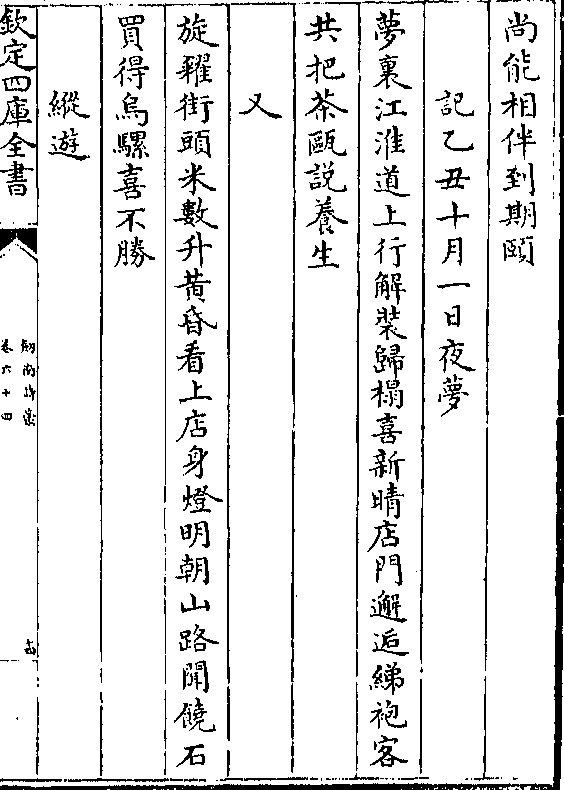 尚能相伴到期頤
記乙丑十月一日夜夢
夢裏江淮道上行解裝歸榻喜新晴店門邂逅綈袍客
共把茶甌説養生
又
旋糴街頭米數升黃昏看上店身燈明朝山路聞饒石
買得烏騾喜不勝
縱遊
欽定四庫全書
劍南詩稾
卷六十四